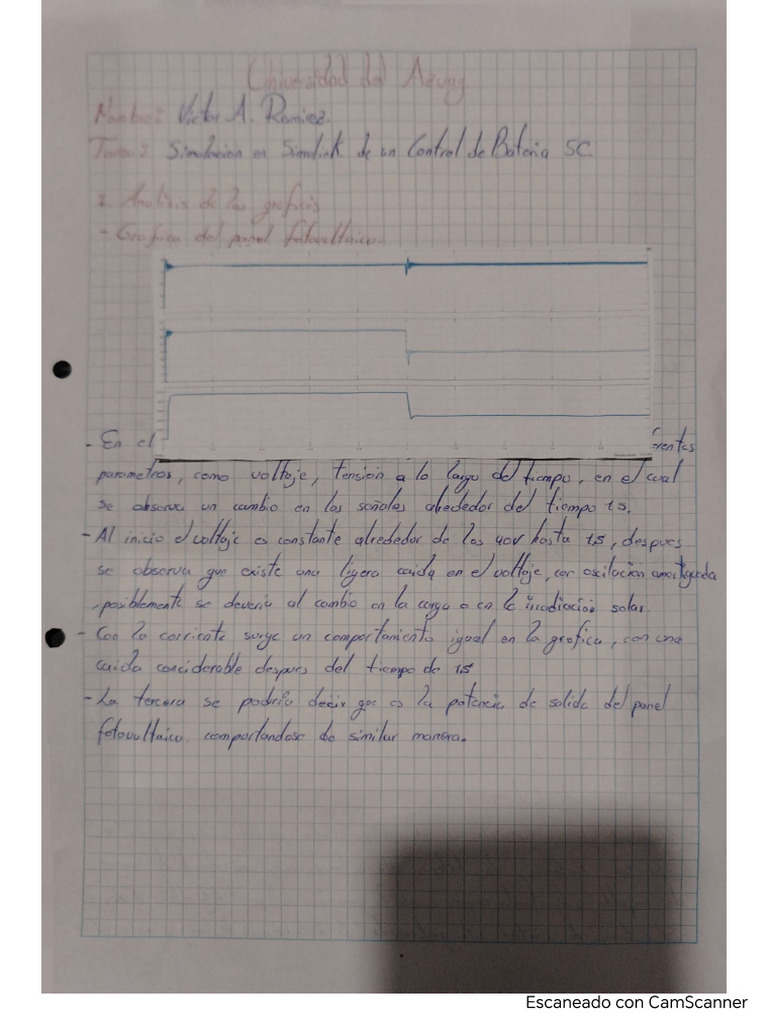 Universidad del Azuay
Nombre: Victor A. Ramirez.
Tema: Simulacion en Simulink de un Control de Bateria SC.
1. Analisis de las graficas
- Grafica del panel fotovoltaico.
- En el
parametros, como voltaje, tension a lo largo del tiempo, en el cual
se observa un cambio en las señales alrededor del tiempo 1s.
- Al inicio el voltaje es constante alrededor de los 40V hasta 1s, despues
se observa que existe una ligera caida en el voltaje, con oscilacion amortiguada
, posiblemente se deveria al cambio en la carga o en la irradiacion solar.
- Con la corriente surge un comportamiento igual en la grafica, con una
caida conciderable despues del tiempo de 1s
- La tercera se podria decir que es la potencia de salida del panel
fotovoltaico comportandose de similar manera.
Escaneado con CamScanner